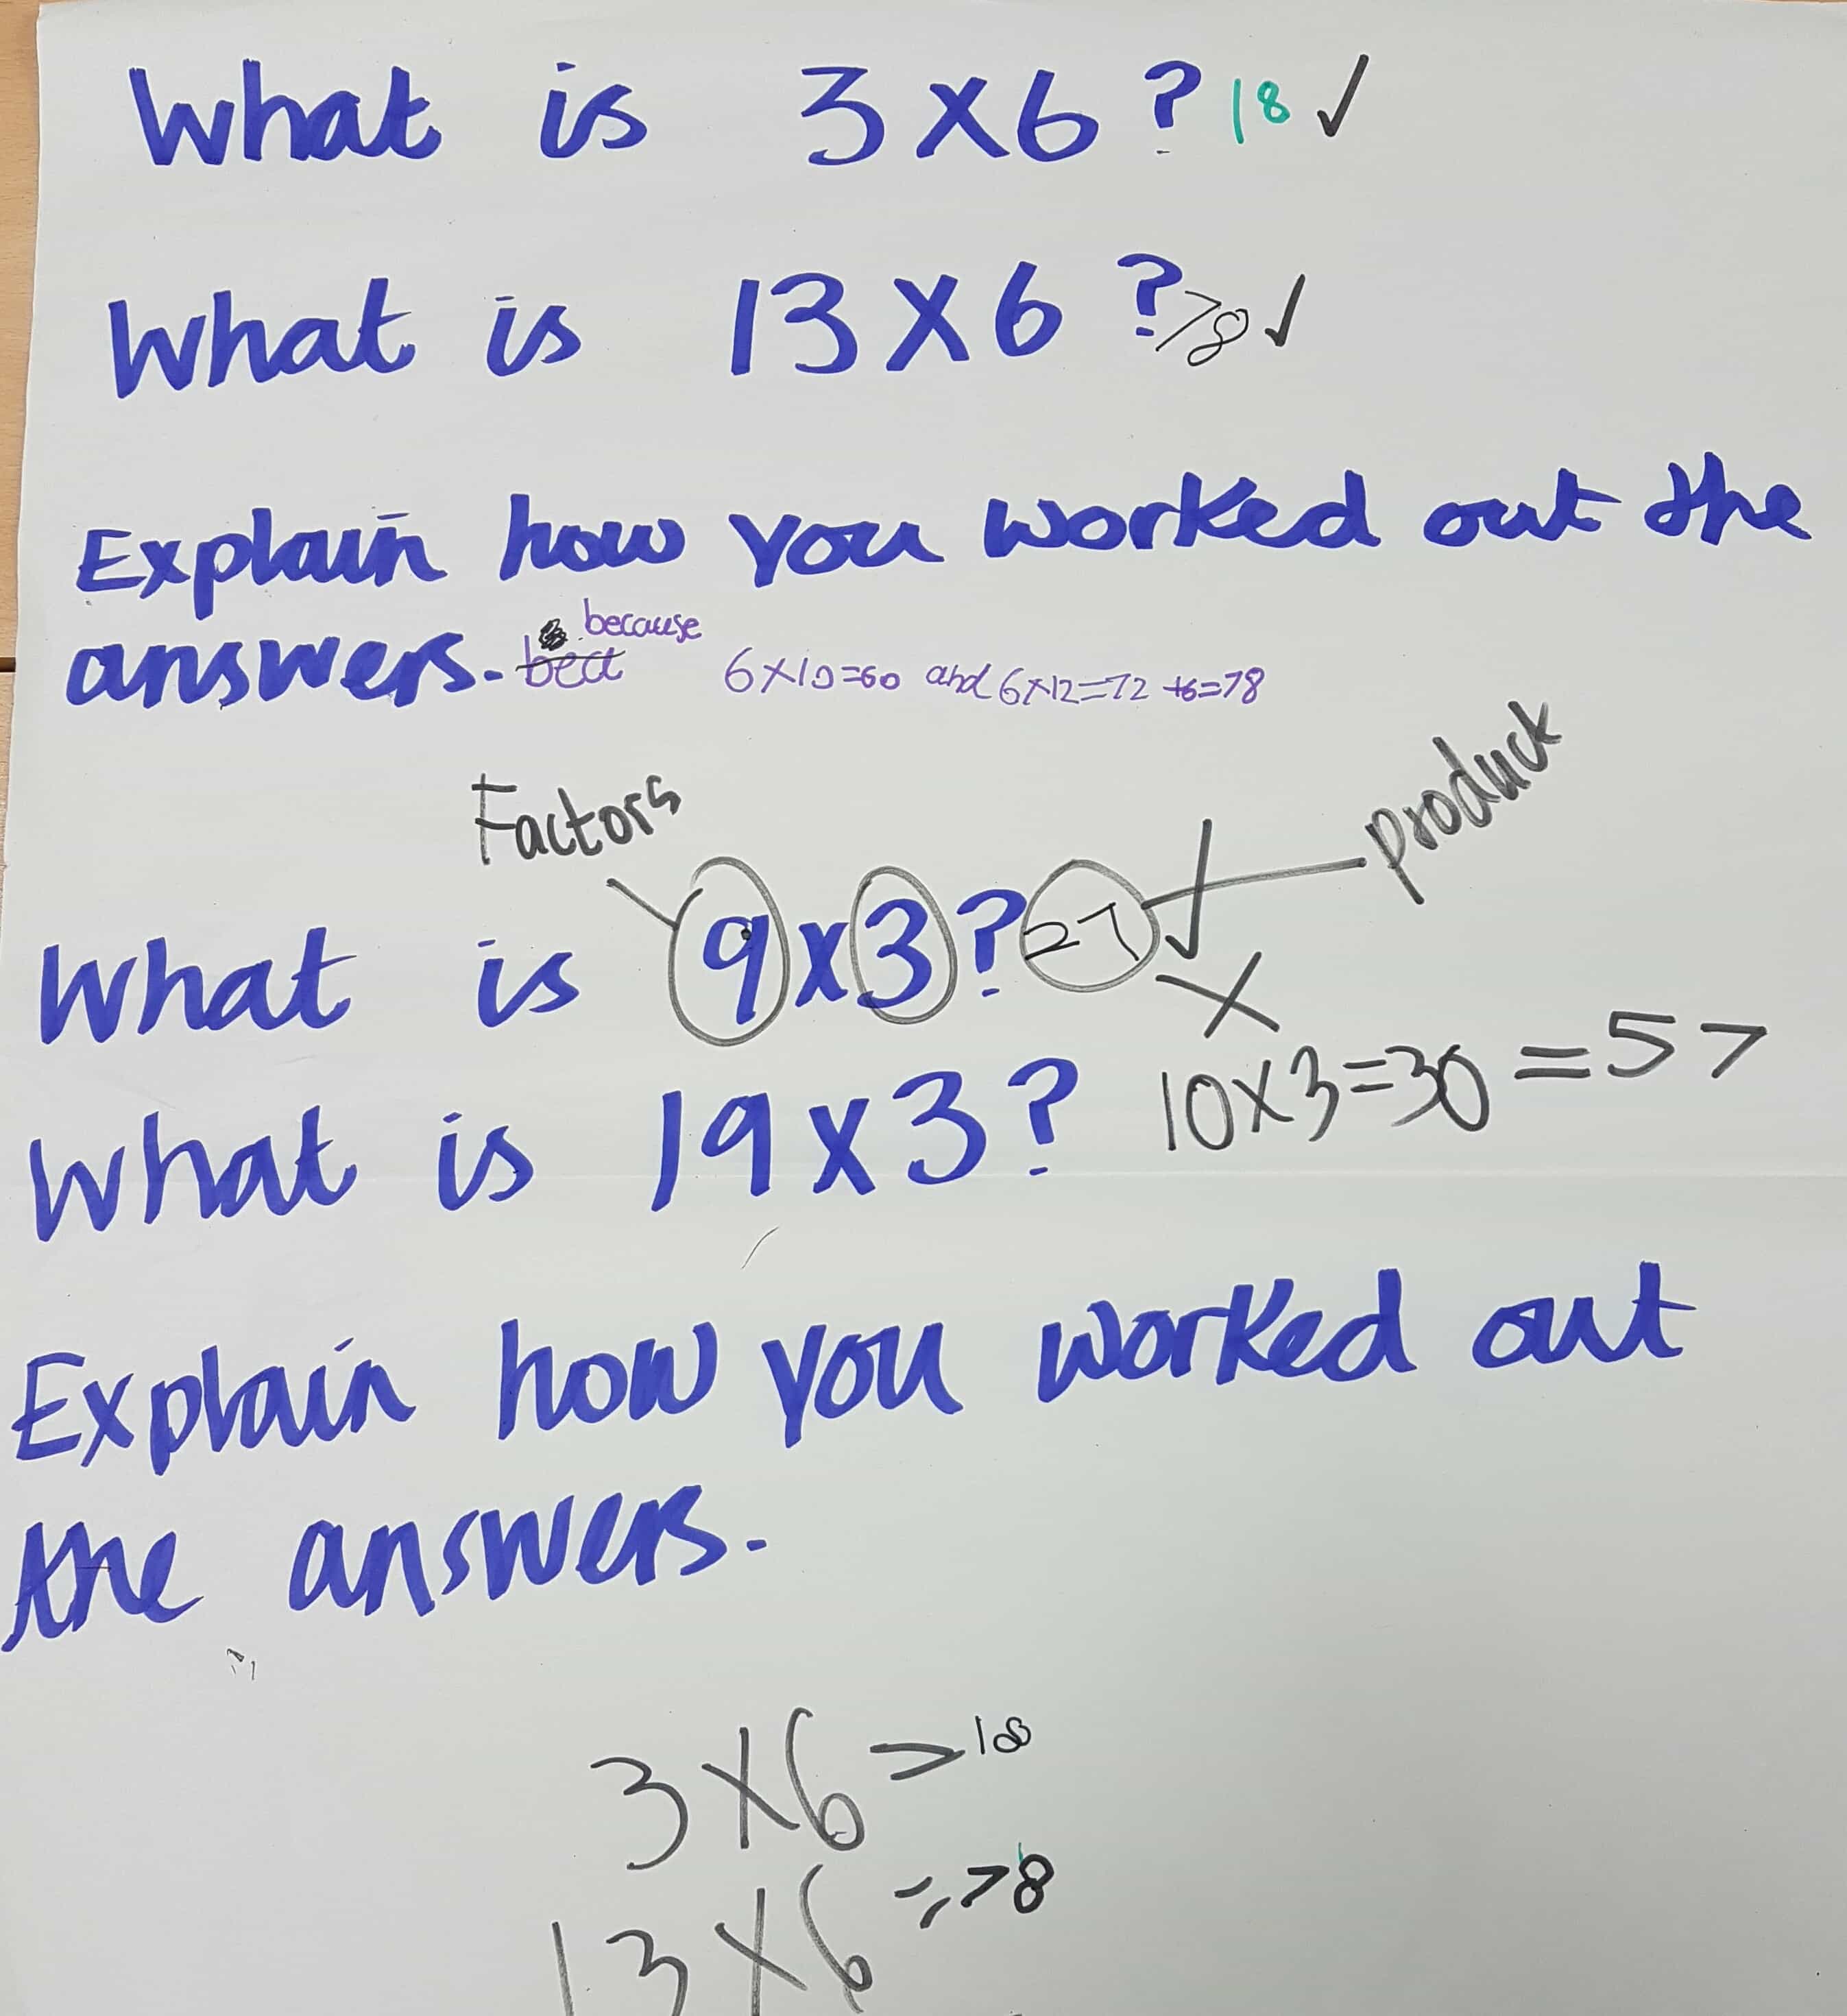 What is 3 x 6 ? 18 ✓
What is 13 x 6 ? 78 ✓
Explain how you worked out the
because
answers. beca 6x10=60 and 6x12=72 +6=78
Factors
Product
What is 9 x 3 ? 27 ✓
x
10x3=30 = 57
What is 19 x 3 ?
Explain how you worked out
the answers.
3 x 6 = 18
13 x 6 = 78